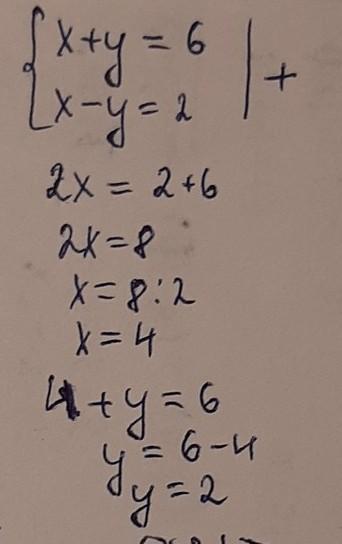 x+y = 6
x-y = 2 | +
2x = 2+6
2x=8
x=8:2
x=4
4+y=6
y=6-4
y=2